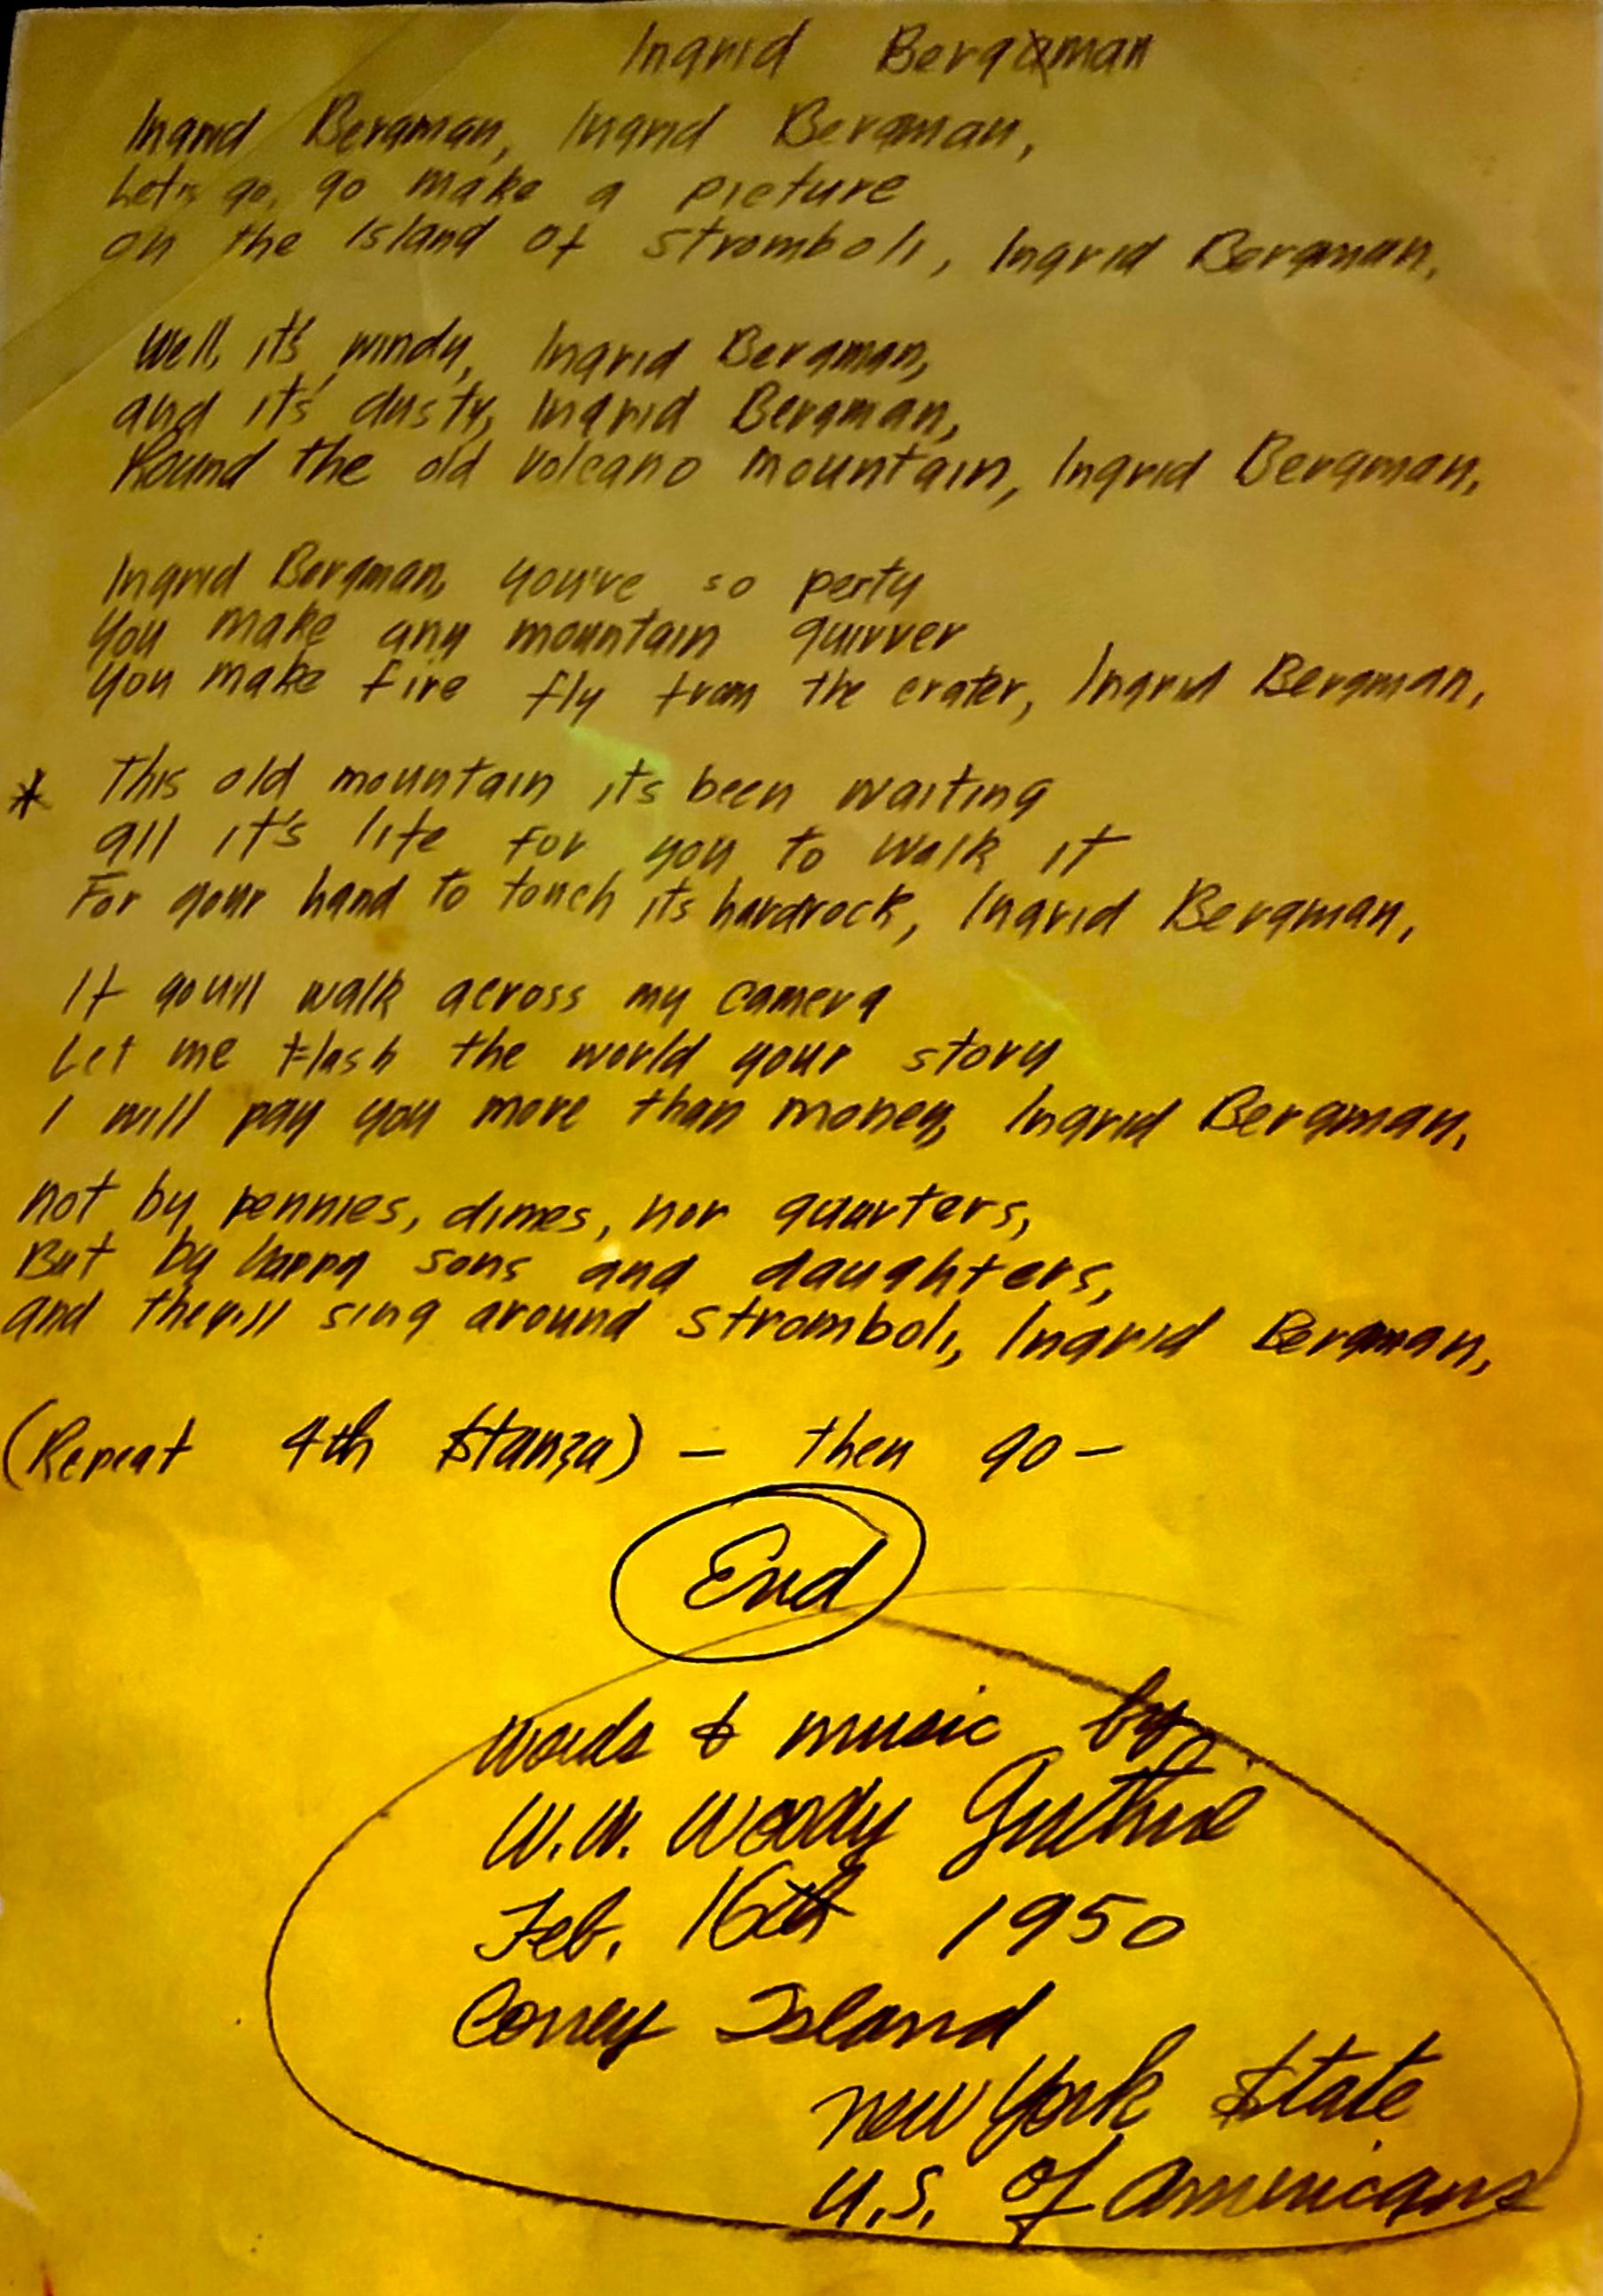 Ingrid Bergman
Ingrid Bergman, Ingrid Bergman,
Let's go, go make a picture
on the Island of Stromboli, Ingrid Bergman,
Well, it's windy, Ingrid Bergman,
and it's dusty, Ingrid Bergman,
Round the old volcano mountain, Ingrid Bergman,
Ingrid Bergman, you're so perty
You make any mountain quivver
You make fire fly from the crater, Ingrid Bergman,
* This old mountain its been waiting
all it's life for you to walk it
For your hand to touch its hardrock, Ingrid Bergman,
If you'll walk across my camera
Let me flash the world your story
I will pay you more than money, Ingrid Bergman,
not by pennies, dimes, nor quarters,
But by happy sons and daughters,
and they'll sing around Stromboli, Ingrid Bergman,
(Repeat 4th Stanza) - then go -
End
Words & music by
W.W. Woody Guthrie
Feb. 16th 1950
Coney Island
New York State
U.S. of Americans